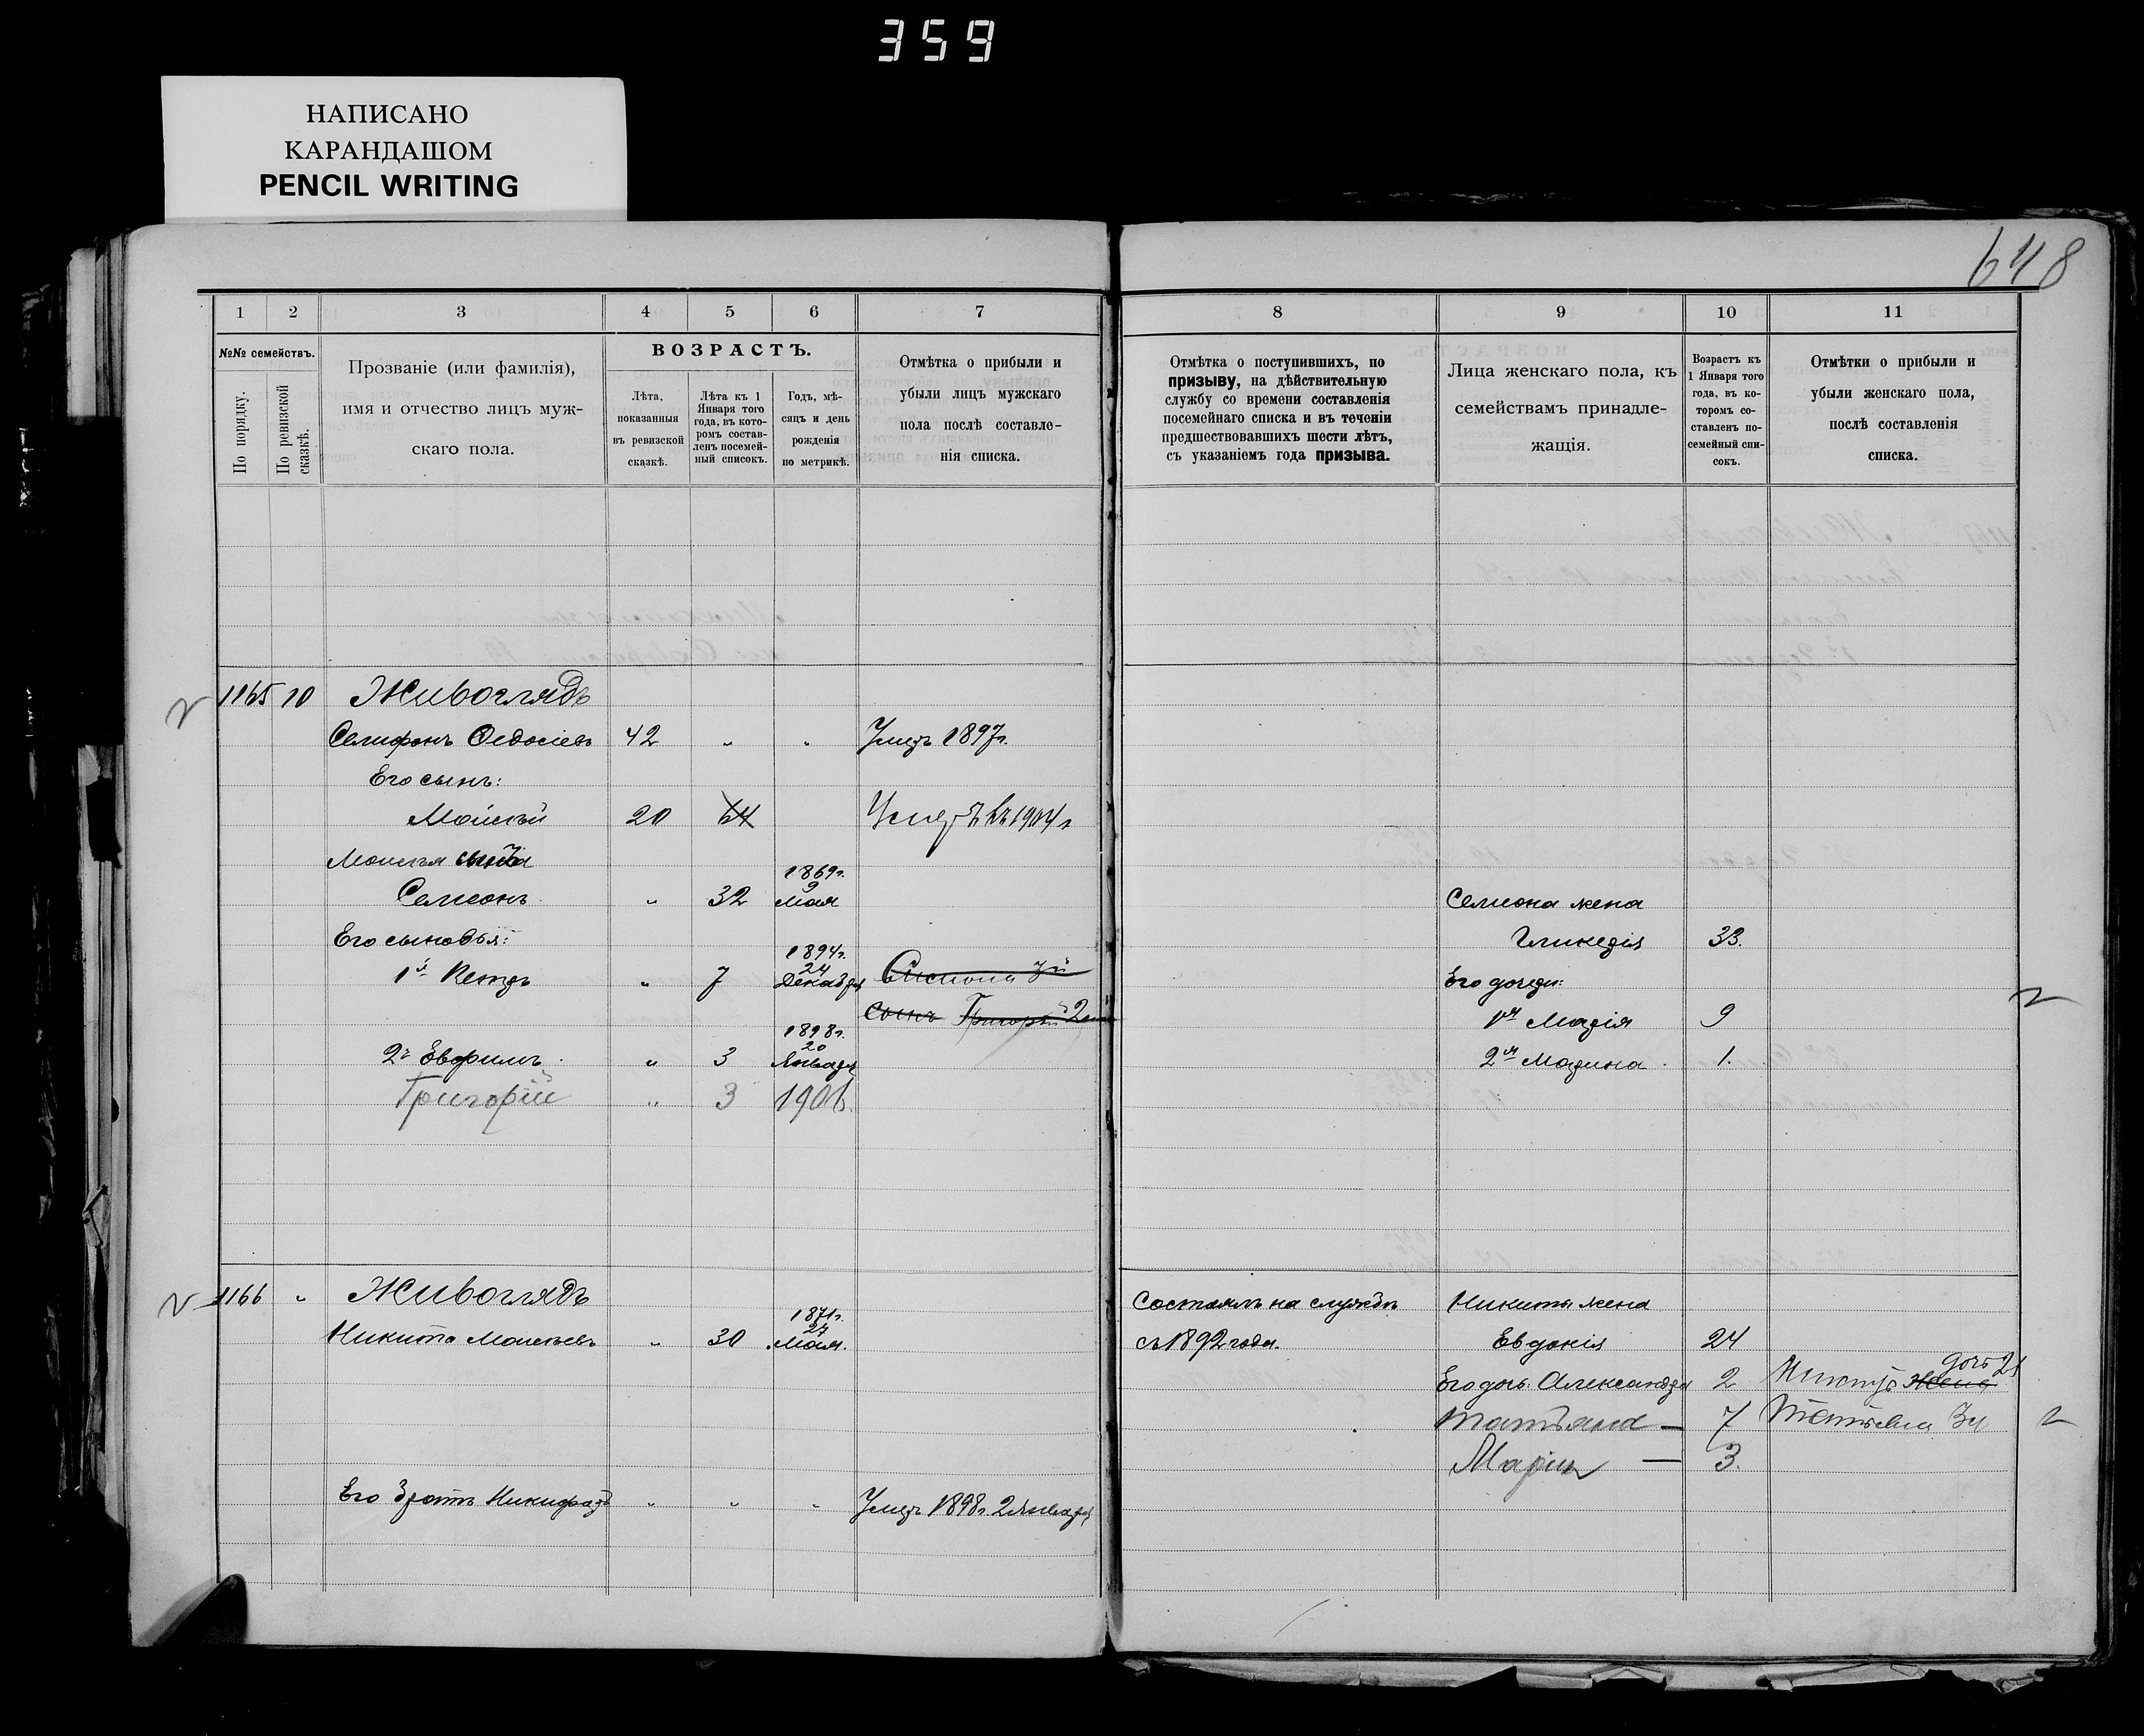 359
НАПИСАНО
КАРАНДАШОМ
PENCIL WRITING
648
1 2 3 4 5 6 7 8 9 10 11
№№ семействъ.
По порядку.
По ревизской сказкѣ.
Прозваніе (или фамилія),
имя и отчество лицъ муж-
скаго пола.
ВОЗРАСТЪ.
Лѣта,
показанныя
въ ревизской
сказкѣ.
Лѣта къ 1
Января того
года, въ кото-
ромъ состав-
ленъ посемей-
ный списокъ.
Годъ, мѣ-
сяцъ и день
рожденія
по метрикѣ.
Отмѣтка о прибыли и
убыли лицъ мужскаго
пола послѣ составле-
нія списка.
Отмѣтка о поступившихъ, по
призыву, на дѣйствительную
службу со времени составленія
посемейнаго списка и въ теченіи
предшествовавшихъ шести лѣтъ,
съ указаніемъ года призыва.
Лица женскаго пола, къ
семействамъ принадле-
жащія.
Возрастъ къ
1 Января того
года, въ ко-
торомъ со-
ставленъ по-
семейный спи-
сокъ.
Отмѣтки о прибыли и
убыли женскаго пола,
послѣ составленія
списка.
1165 10 Живоглядъ
Селифонъ Федосіевъ 42 " " Умеръ 1897г.
Его сынъ:
Моисѣй 20 64 Умеръ въ 1904 г
Моисѣя
1869г.
9
Семіонъ " 32 Мая Семіона жена
Его сыновья: Гликерія 33.
1894г.
24
1й Петръ " 7 Декабря Его дочери:
сынъ Григорій
1я Марія 9
1898г.
20
2й Евфимъ " 3 Января 2я Марина 1.
Григорій " 3 1901.
1166 " Живоглядъ Состоялъ на службѣ Никиты жена
1871г.
27
Никита Моисѣевъ " 30 Мая. съ 1892 года. Евдокія 24
дочь 2я
Его дочь: Александра 2 жена
Татьяна — 7 Татьяна 3я
Марія — 3.
Его братъ Никифоръ " " " Умеръ 1898г. 2 января